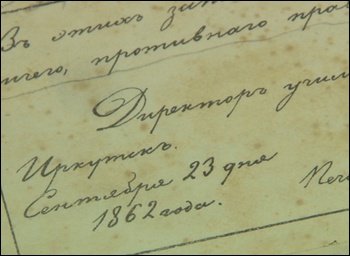 Въ этихъ зап
ничего, противнаго пра
Директоръ учили
Иркутскъ.
Сентября 23 дня
1862 года.
Печ